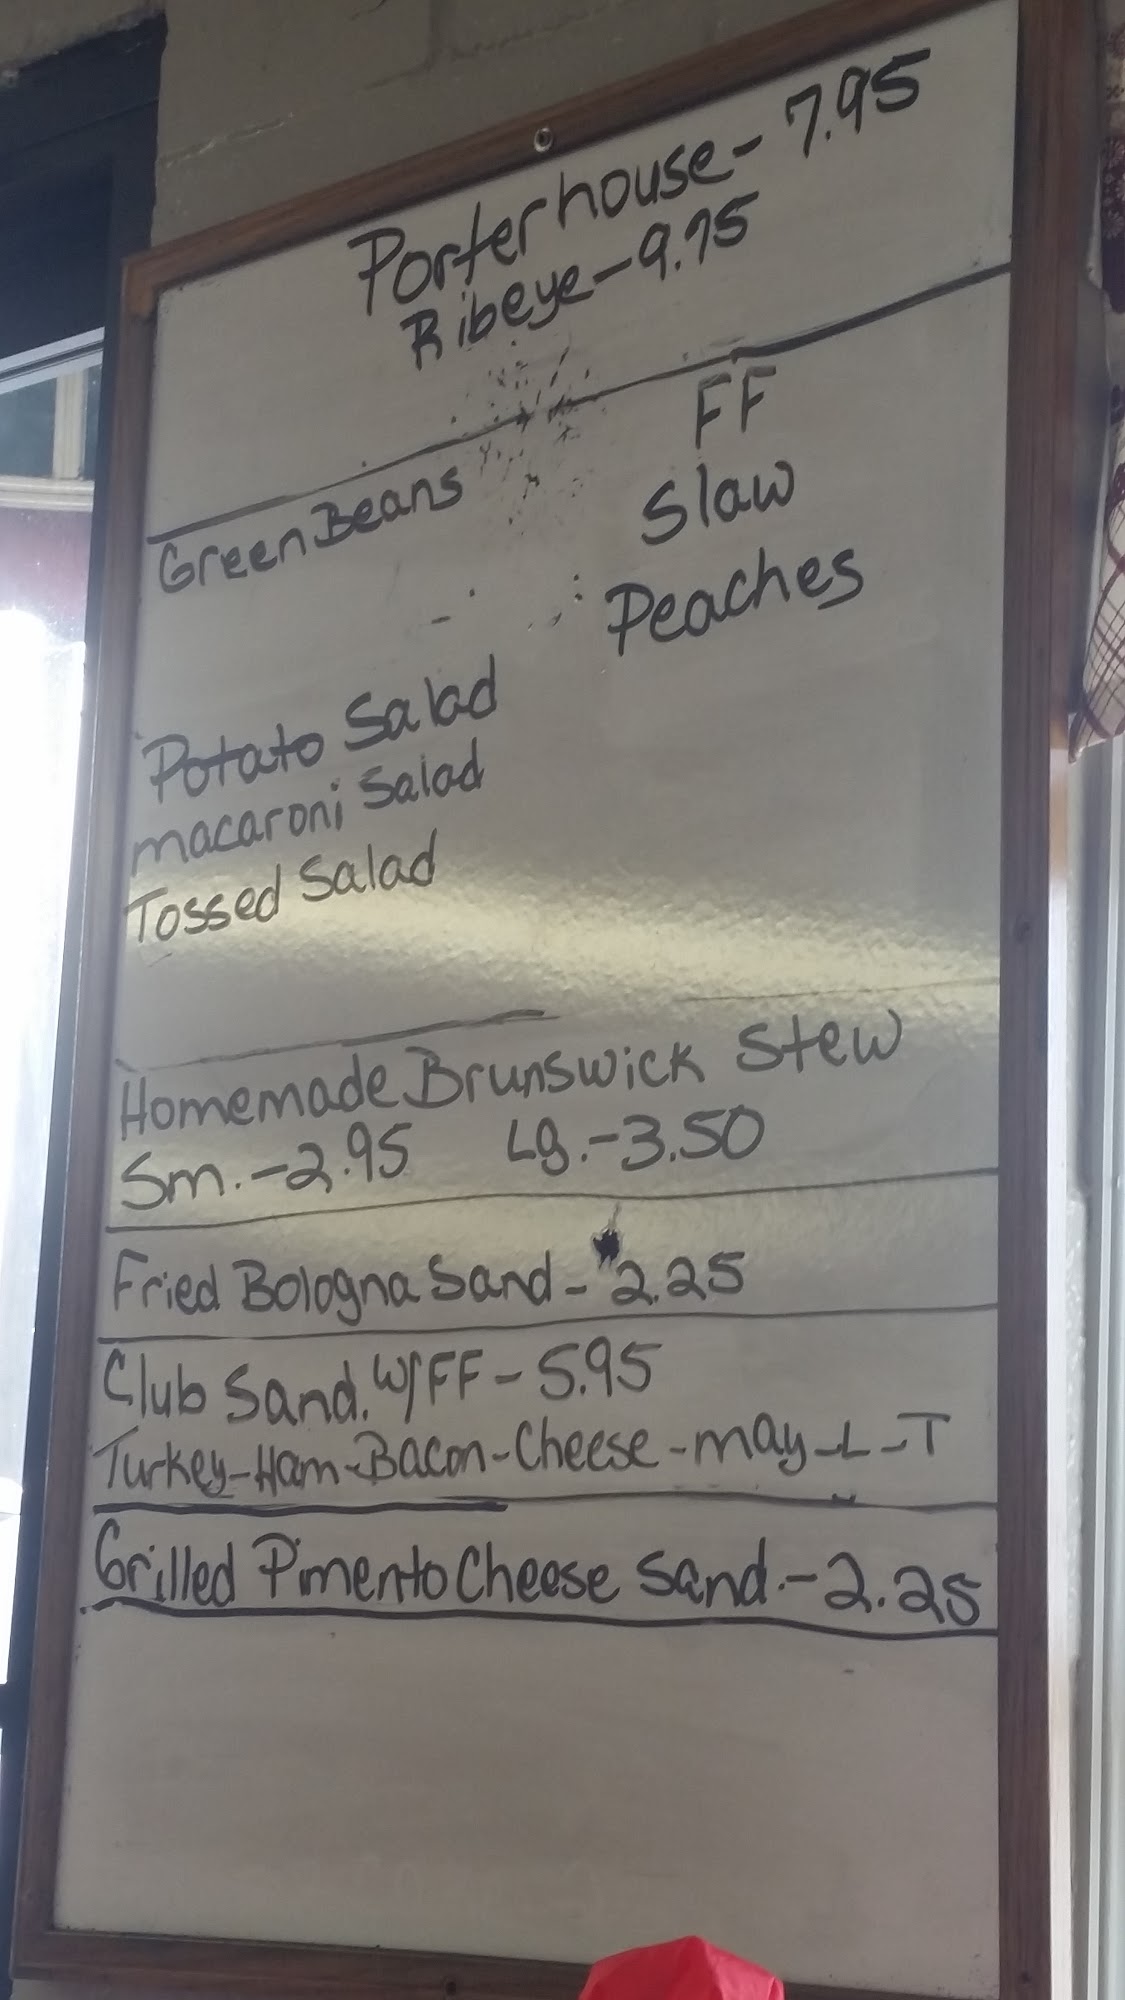 Porterhouse - 7.95
Ribeye - 9.75
Green Beans
FF
Slaw
Peaches
Potato Salad
macaroni Salad
Tossed Salad
Homemade Brunswick Stew
Sm. - 2.95 Lg. - 3.50
Fried Bologna Sand - 2.25
Club Sand. W/FF - 5.95
Turkey-Ham-Bacon-Cheese-may-L-T
Grilled Pimento Cheese Sand. - 2.25